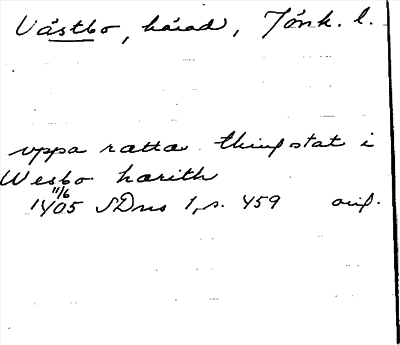 Västbo, härad, Jönk. l.
uppa ratta thingstat i
Wesbo hærith
11/6
1405 SDns 1, s. 459 orig.